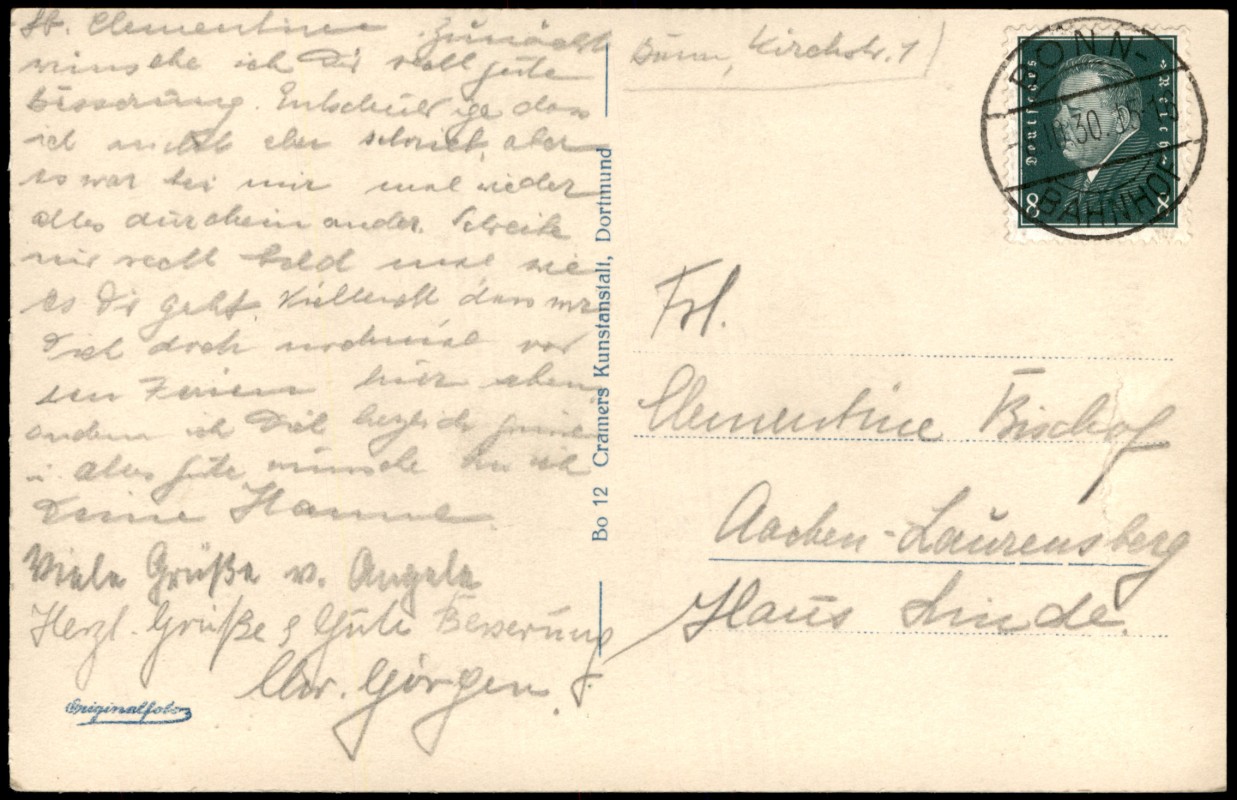 lb. Clementine. Zunächst
wünsche ich Dir recht gute
Besserung. Entschuldige dass
ich nicht eher schrieb, aber
es war bei mir mal wieder
alles durcheinander. Schreibe
mir recht bald mal wie
es Dir geht. Vielleicht dass wir
Dich doch nochmal vor
den Ferien hier sehen
ich Dich herzlich
u. alles gute wünsche bin ich
Deine Hanna.
Viele Grüße v. Angela
Herzl. Grüße & Gute Besserung
Chr. Görgen
Originalfoto
Bo 12 Cramers Kunstanstalt, Dortmund
Bonn, Kirchstr. 1
BONN-
10.30.
BAHNHOF
Deutsches Reich
8 8
Frl.
Clementine Bischof
Aachen-Laurensberg
Haus Linde.